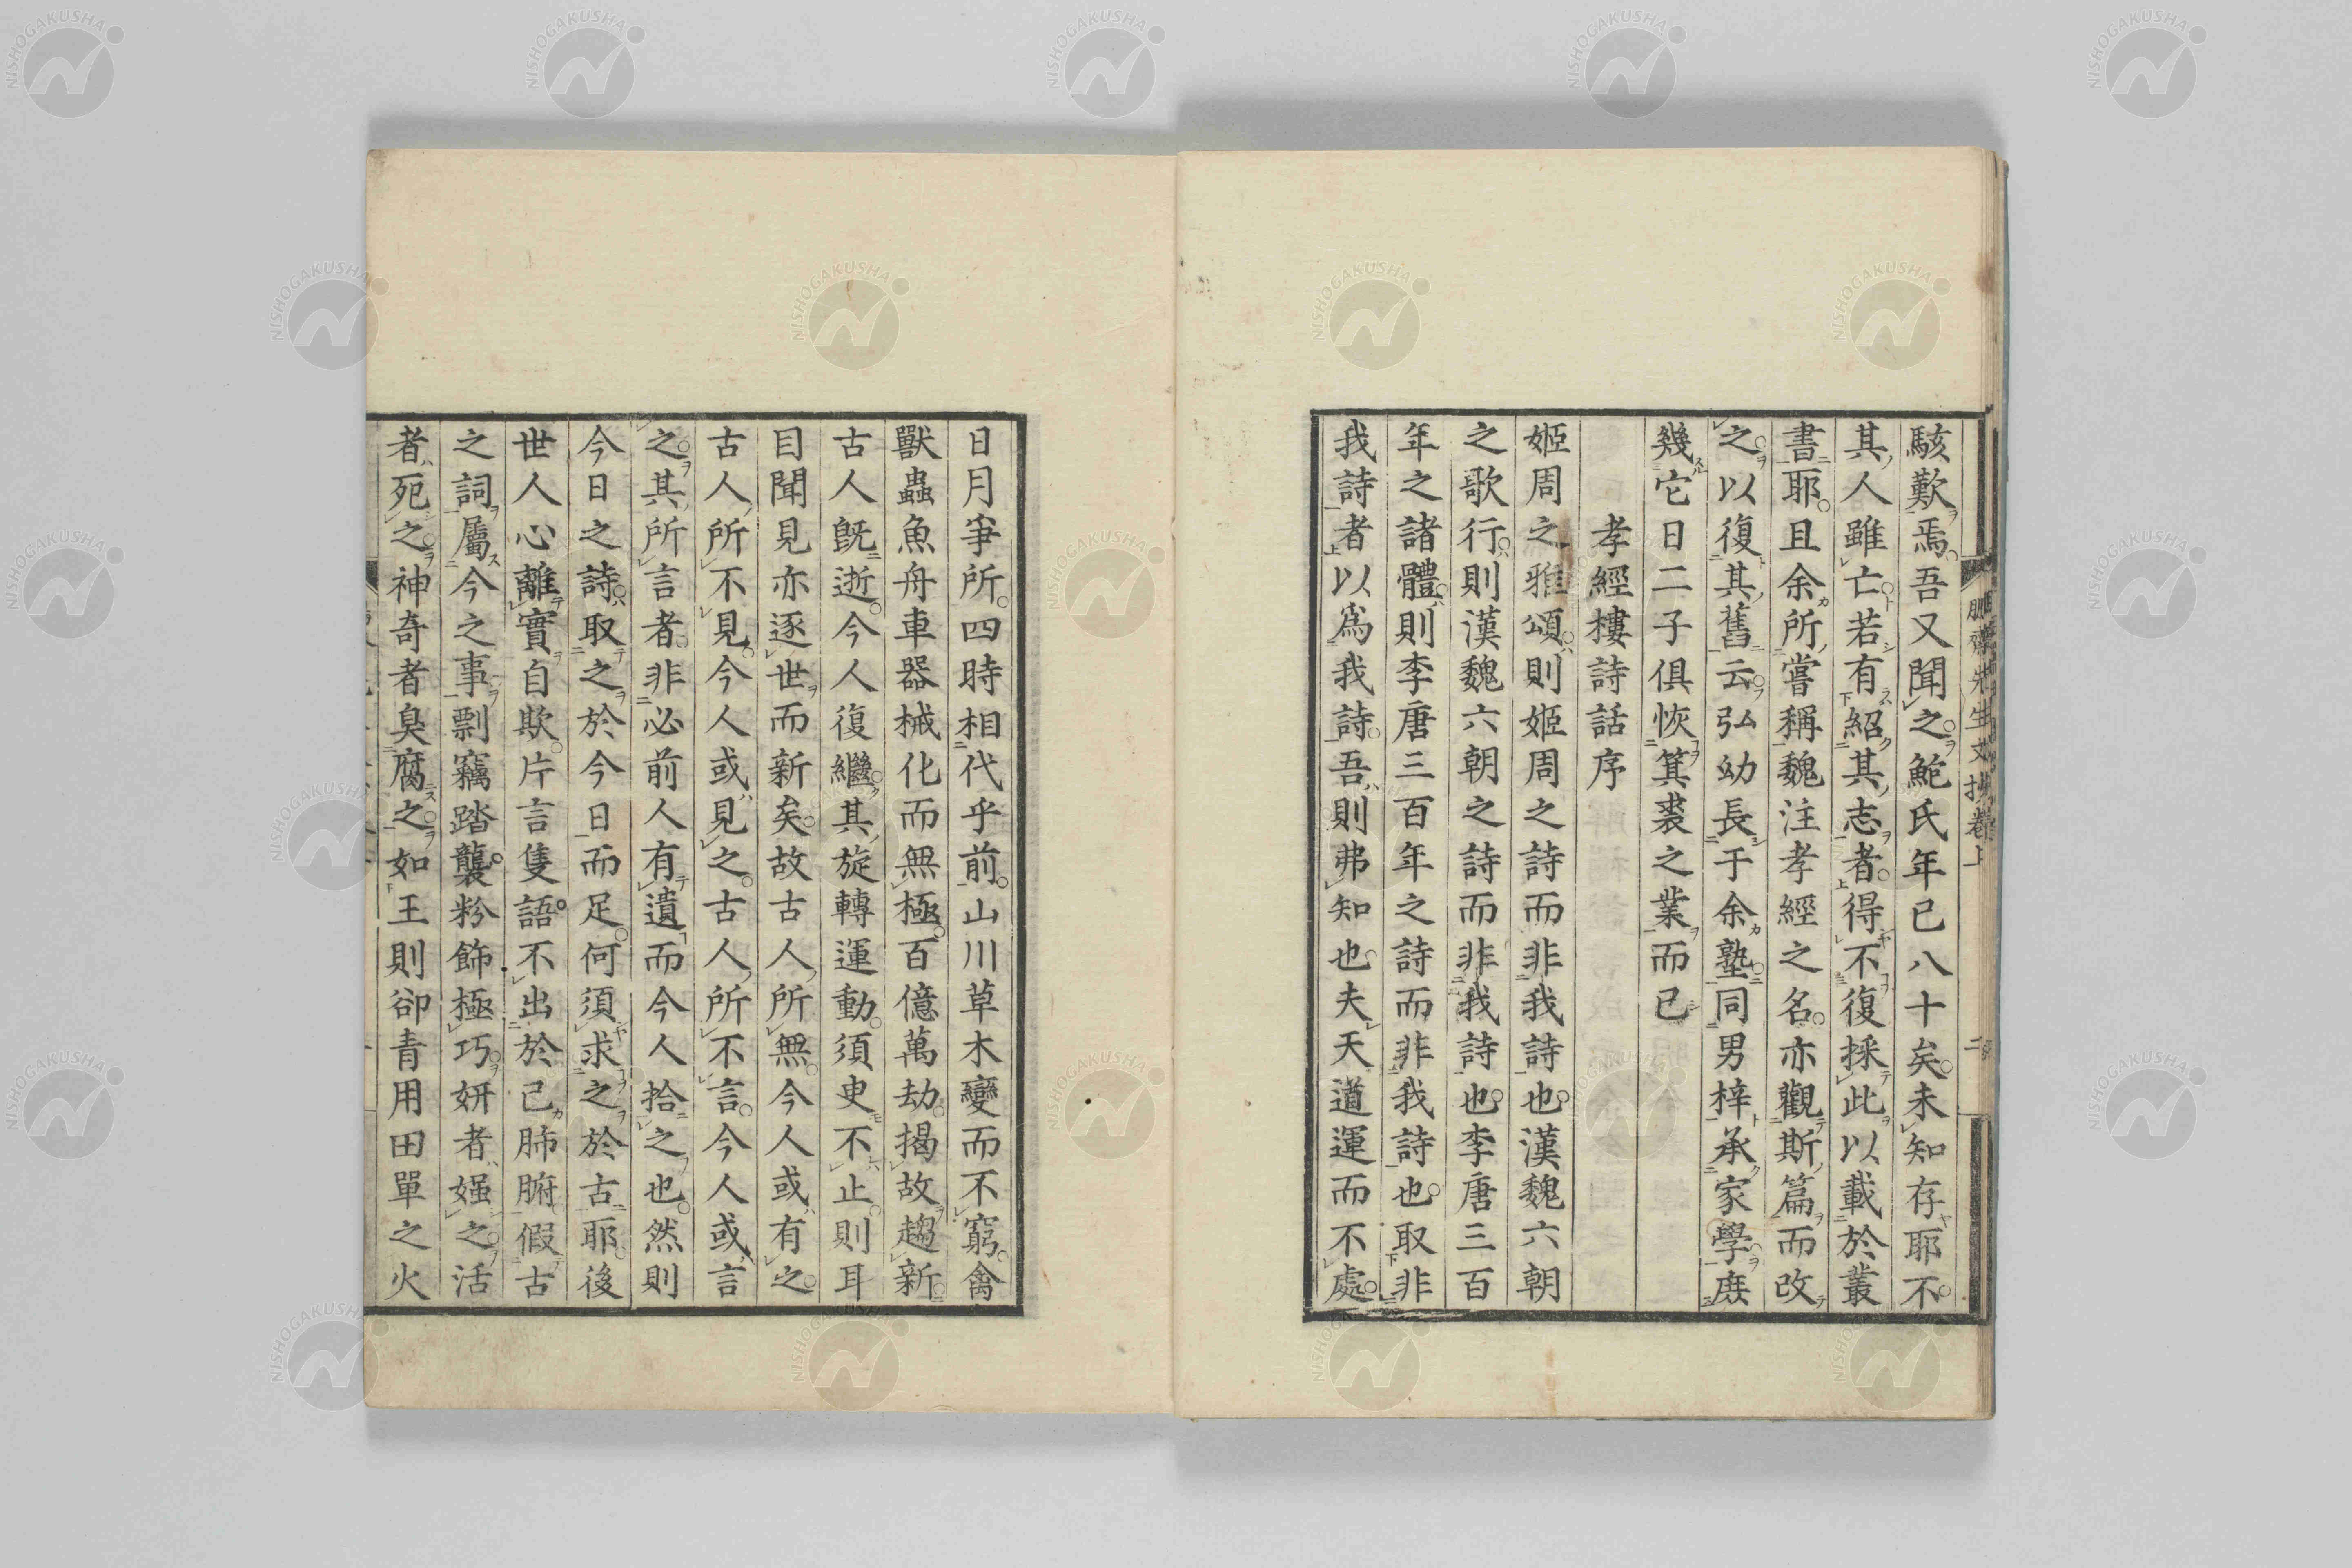 駭歎焉吾又聞之鮑氏年已八十矣未知存耶不
其人雖亡若有紹其志者得不復採此以載於叢
書耶且余所嘗稱魏注孝經之名亦觀斯篇而改
之以復其舊云弘幼長于余塾同男梓承家學庶
幾它日二子俱恢箕裘之業而已
孝經樓詩話序
姬周之雅頌則姬周之詩而非我詩也漢魏六朝
之歌行則漢魏六朝之詩而非我詩也李唐三百
年之諸體則李唐三百年之詩而非我詩也取非
我詩者以爲我詩吾則弗知也夫天道運而不處
日月爭所四時相代乎前山川草木變而不窮禽
獸蟲魚舟車器械化而無極百億萬劫揭故趨新
古人既逝今人復繼其旋轉運動須臾不止則耳
目聞見亦逐世而新矣故古人所無今人或有之
古人所不見今人或見之古人所不言今人或言
之其所言者非必前人有遺而今人拾之也然則
今日之詩取之於今日而足何須求之於古耶後
世人心離實自欺片言隻語不出於己肺腑假古
之詞屬今之事剽竊踏襲粉飾極巧妍者媸之活
者死之神奇者臭腐之如王則卻青用田單之火
鵬齋先生文抄卷上
二
NISHOGAKUSHA